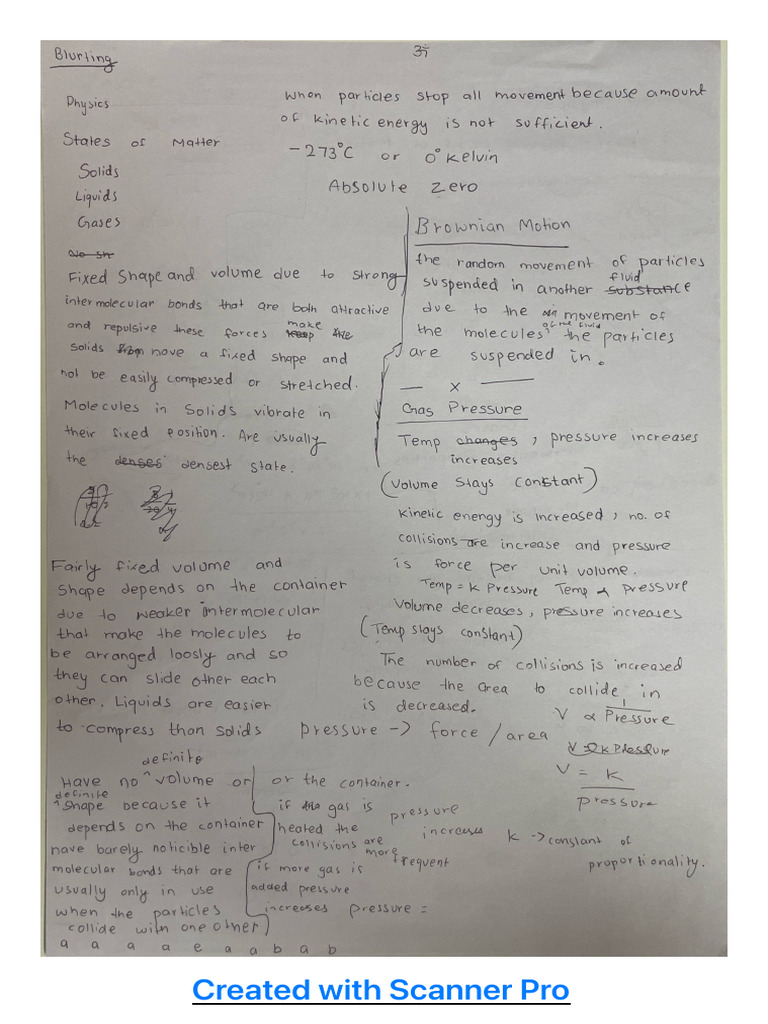 Blurting
Physics
States of Matter
Solids
Liquids
Gases
when particles stop all movement because amount
of kinetic energy is not sufficient.
-273°C or 0° Kelvin
Absolute Zero
Fixed Shape and volume due to strong
intermolecular bonds that are both attractive
and repulsive these forces make the
solids have a fixed shape and
not be easily compressed or stretched.
Molecules in Solids vibrate in
their fixed position. Are usually
the denses densest state.
Fairly fixed volume and
Shape depends on the container
due to weaker intermolecular
that make the molecules to
be arranged loosly and so
they can slide other each
other. Liquids are easier
to compress than solids
Have no definite volume or
definite shape because it
depends on the container
have barely noticible inter
molecular bonds that are
usually only in use
when the particles
collide with one other
a a a a e a a b a b
Brownian Motion
the random movement of particles
suspended in another substance fluid
due to the movement of
the molecules of the fluid the particles
are suspended in.
— x —
Gas Pressure
Temp changes, pressure increases
increases
(Volume stays constant)
Kinetic energy is increased, no. of
collisions are increase and pressure
is force per unit volume.
Temp = k Pressure Temp ∝ Pressure
Volume decreases, pressure increases
(Temp stays constant)
The number of collisions is increased
because the area to collide in
is decreased.
V ∝ 1/Pressure
pressure -> force / area
V = k Pressure
V = k
pressure
or the container.
if the gas is
heated the pressure increases
collisions are more frequent
if more gas is
added pressure
increases pressure =
k -> constant of
proportionality.
Created with Scanner Pro